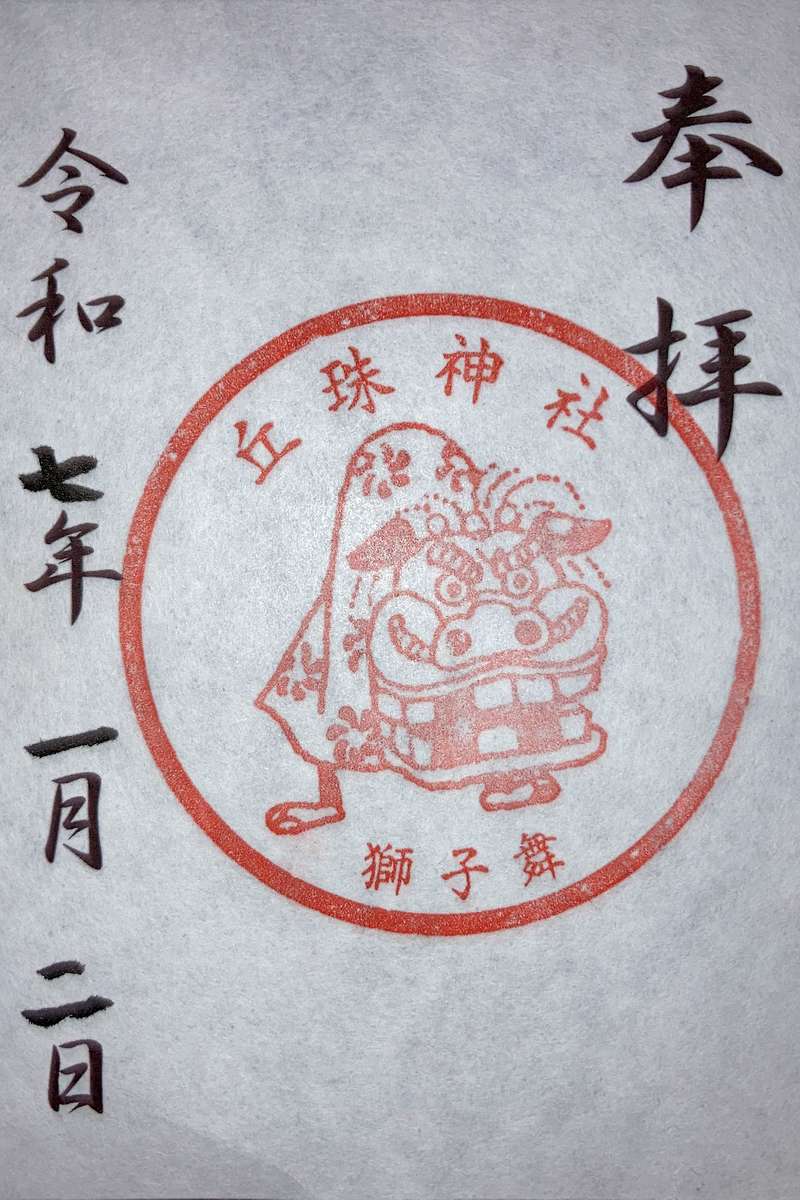 奉拝
丘珠神社
獅子舞
令和七年一月二日